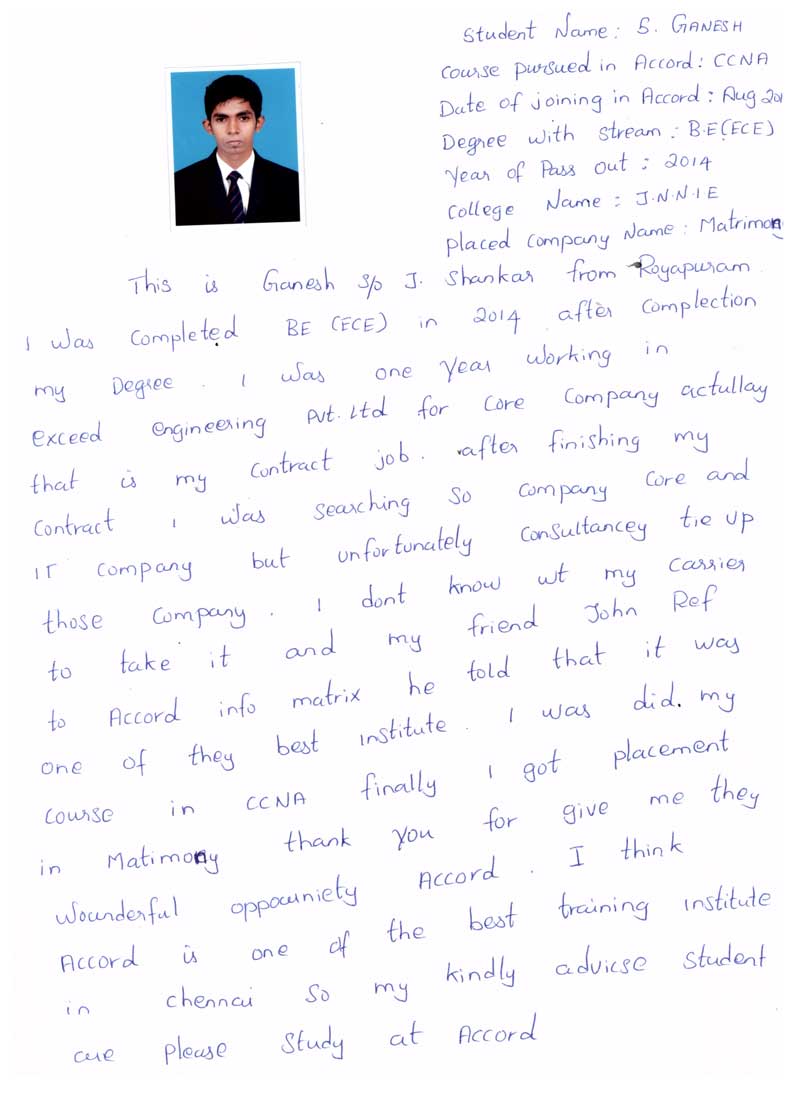 Student Name: S. GANESH
Course pursued in Accord: CCNA
Date of joining in Accord: Aug 201
Degree with stream: B.E(ECE)
Year of Pass out: 2014
College Name: J.N.N.I.E
Placed Company Name: Matrimon
This is Ganesh s/o J. Shankar from Royapuram
I was completed BE (ECE) in 2014 after complection
my Degree. I was one year working in
exceed engineering Pvt. Ltd for core company actullay
that is my contract job. after finishing my
contract I was searching so company core and
IT company but unfortunately consultancey tie up
those company. I dont know wt my carrier
to take it and my friend John Ref
to Accord info matrix he told that it was
one of they best institute. I was did. my
course in CCNA finally I got placement
in Matimony thank you for give me they
wounderful oppouniety Accord. I think
Accord is one of the best training institute
in chennai so my kindly advicse student
are please study at Accord